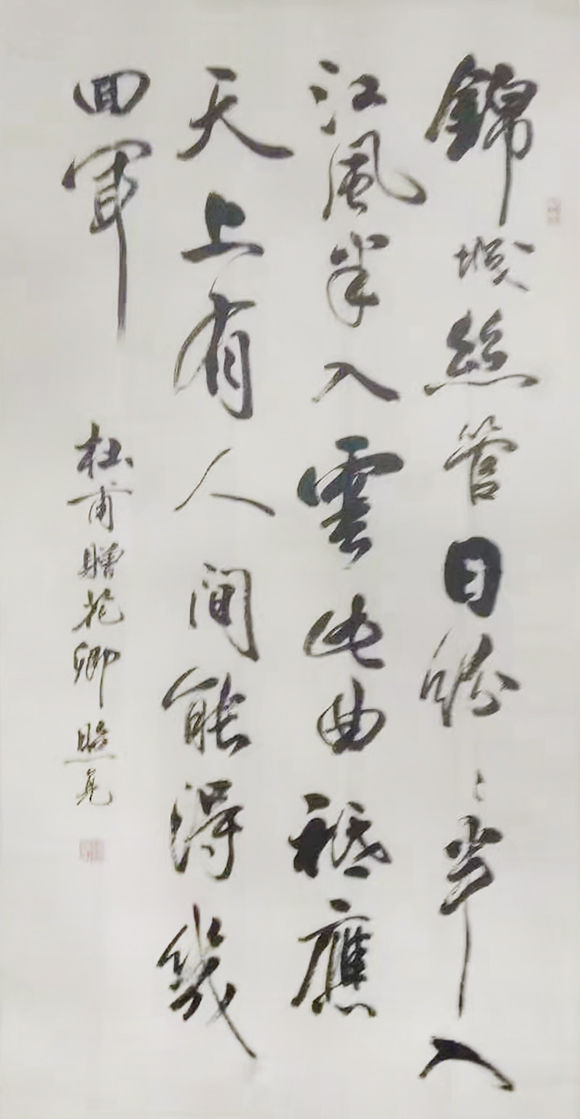 錦城絲管日紛〻半入
江風半入雲此曲祗應
天上有人間能得幾
回聞
杜甫贈花卿 照